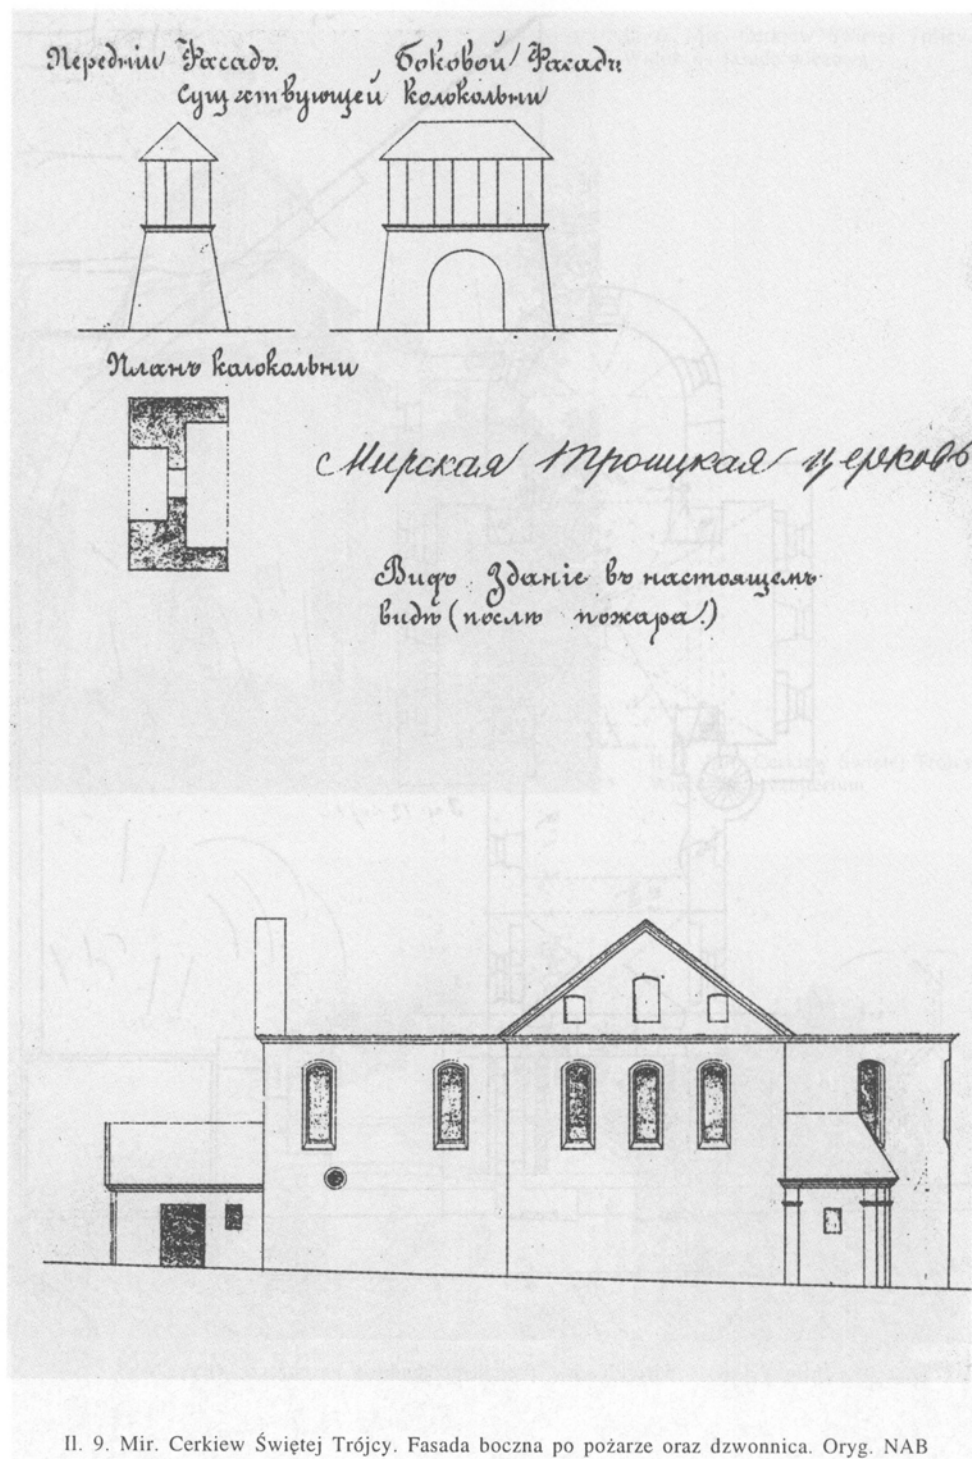 Передній Фасадъ. Боковой Фасадъ
Существующей колокольни
Планъ колокольни
Мирская Троицкая церковь
Видъ Зданіе въ настоящемъ
видѣ (послѣ пожара.)
Il. 9. Mir. Cerkiew Świętej Trójcy. Fasada boczna po pożarze oraz dzwonnica. Oryg. NAB